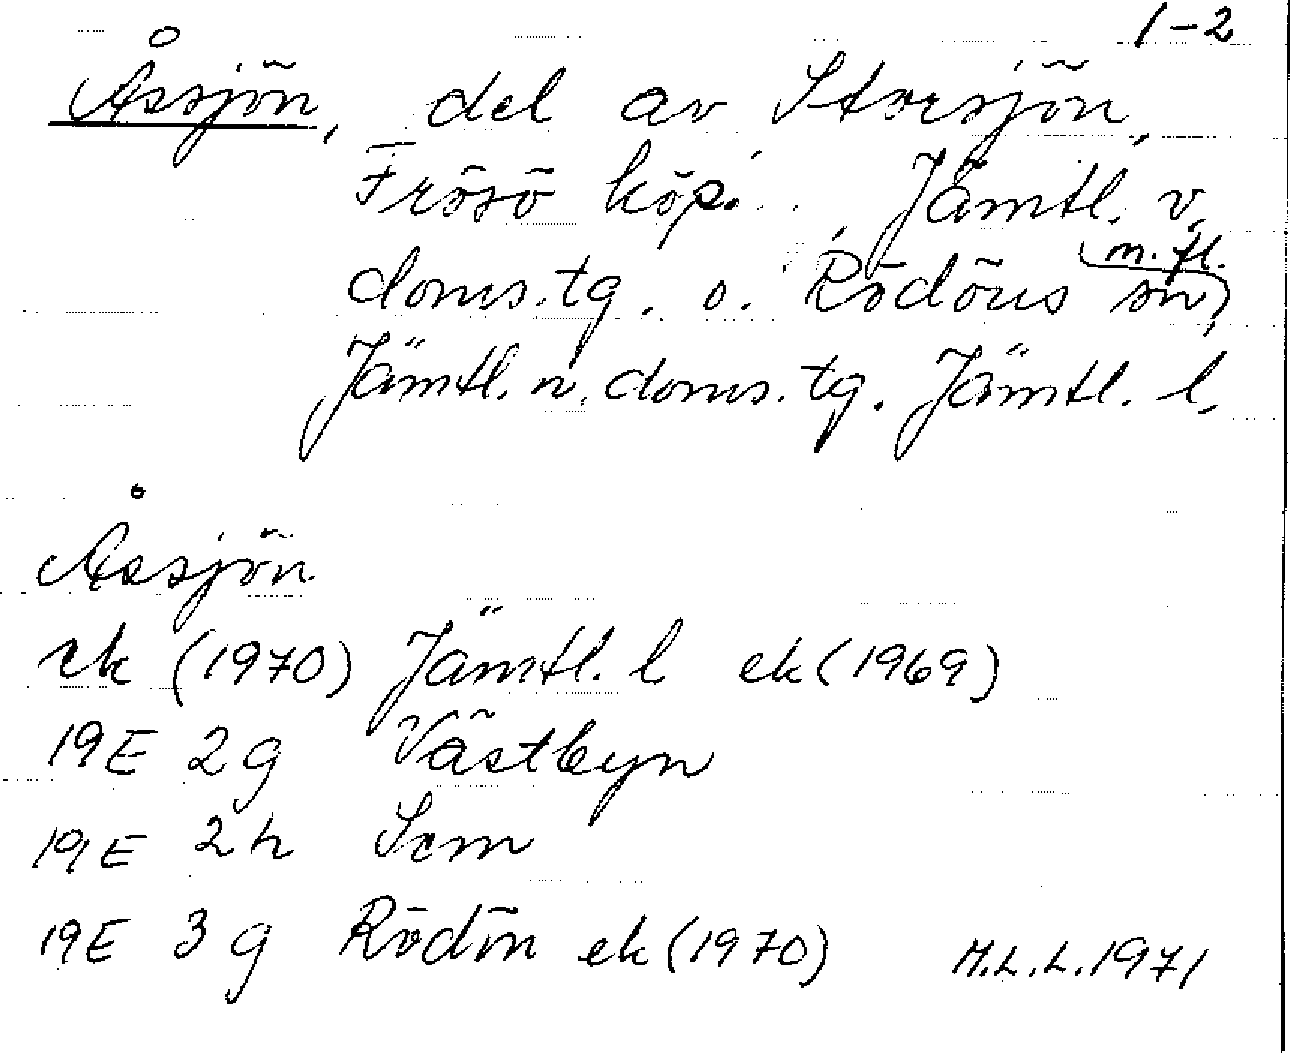 1-2
Åssjön, del av Storsjön,
Frösö köp. Jämtl. v.
doms.tg. o. Rödöns sn,
m. fl.
Jämtl. n. doms. tg. Jämtl. l.
Åssjön
rk (1970) Jämtl. l ek (1969)
19E 2g Västbyn
19E 2h Sem
19E 3g Rödön ek (1970) M.L.L. 1971